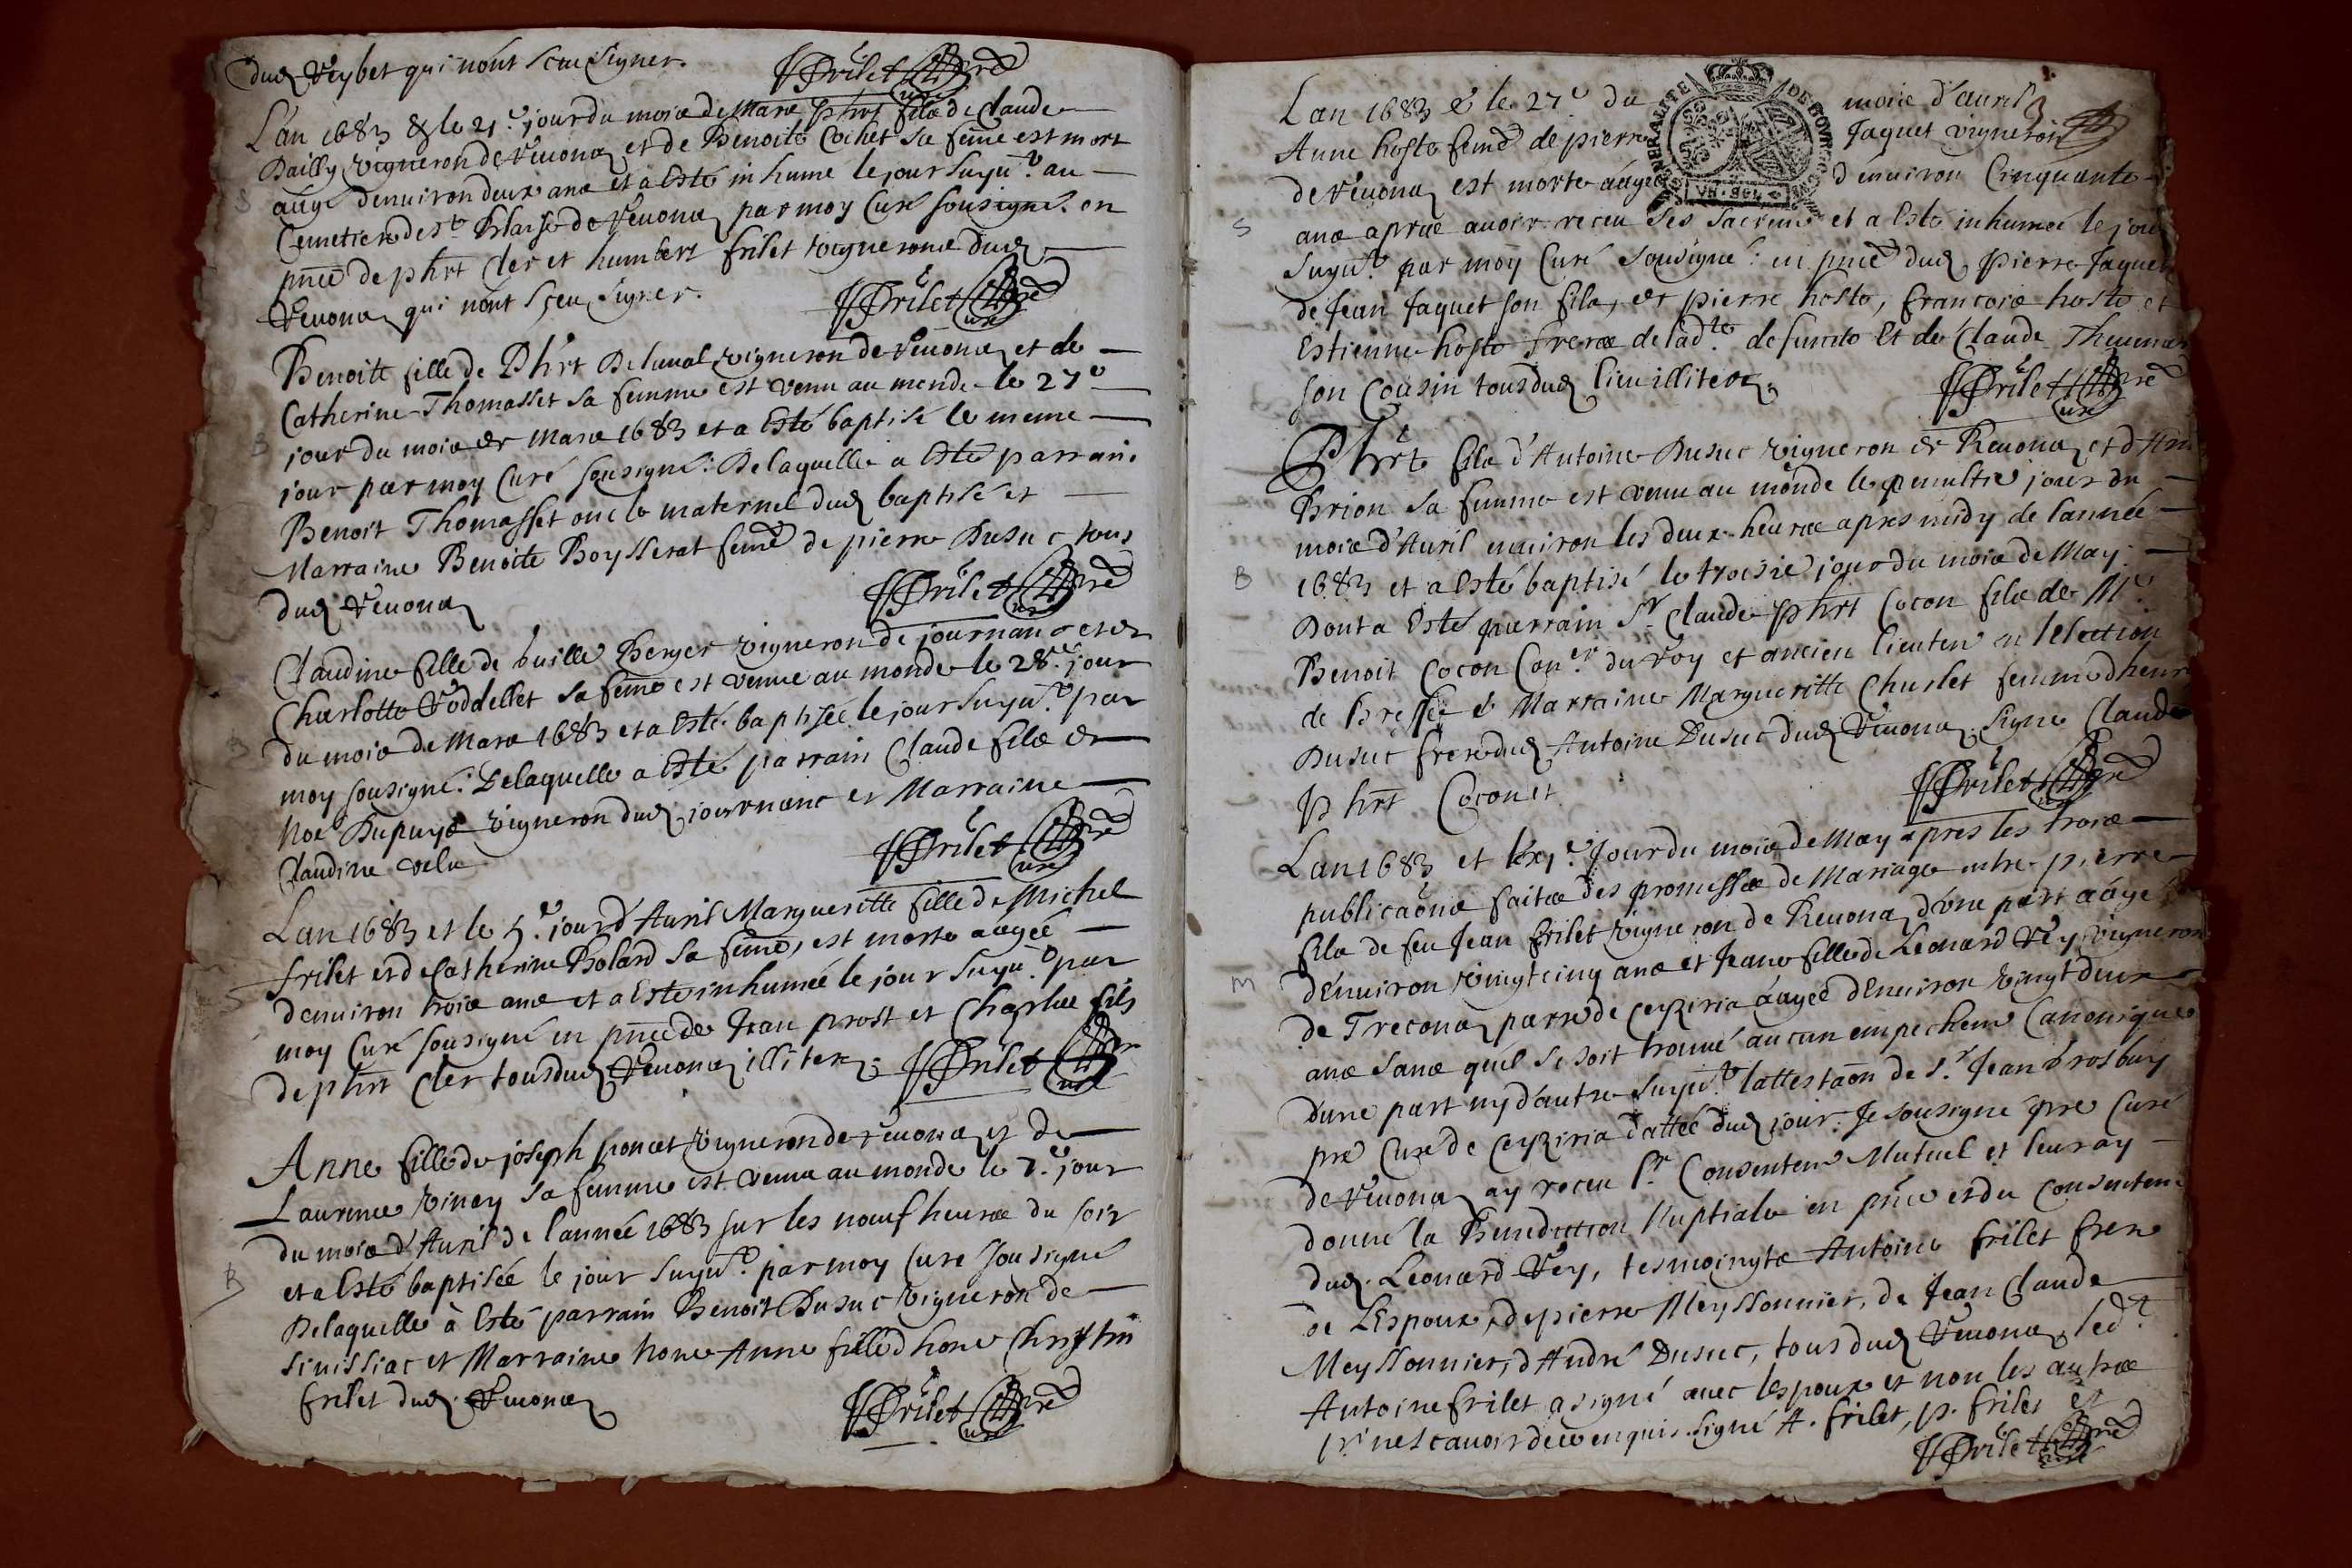 dud Reybet qui nont sceu signer.
PFrilet pre
curé
L'an 1683 & le 21e jour du mois de Mars phrt fils de Claude
Bailly vigneron de Reuonas et de Benoite Cochet sa feme est mort
aagé denuiron deux ans et a Esté inhumé le jour suyut au
S
Cemetiere de st Blaise de Reuonas par moy Curé sousigné. en
pnce de phrt Cler et humbert frilet vignerons dud
Reuonas qui nont sçeu signer.
PFrilet pre
curé
Benoite fille de Phrt Deluual vigneron de Reuonas et de
Catherine Thomasset sa femme est venu au monde le 27e
jour du mois de Mars 1683 et a Esté baptisé le meme
B
jour par moy Curé sousigné: De laquelle a Esté parrain
Benoit Thomasset oncle maternel dud baptisé et
Marraine Benoite Boysserat feme de pierre Dusuc tous
dud Reuonas
PFrilet pre
curé
Claudine fille de Guille Berger vigneron de journans et de
Charlotte Roddellet sa feme est venue au monde le 28e jour
du mois de Mars 1683 et a Esté baptisée le jour suyut par
B
moy sousigné: De laquelle a Esté parrain Claude fils de
Noé Dupuys vigneron dud journans et Marraine
Claudine velu
PFrilet pre
curé
Lan 1683 et le 5e jour d'Auril Margueritte fille de Michel
frilet et de Catherine Bolard sa feme, est morte aagée
denuiron trois ans et a Esté inhumée le jour suyut par
S
moy Curé sousigné en pnce de Jean prost et Charles fils
de phrt Cler tous dud Reuonas illiters.
PFrilet pre
curé
Anne fille de joseph poncet vigneron de reuonas et de
Laurence viney sa femme est venue au monde le 7e jour
du mois d'Auril de l'année 1683 sur les neuf heures du soir
et a Esté baptisée le jour suyut par moy Curé sousigné
B
De laquelle à Esté parrain Benoit Dusuc vigneron de
Simissiac et Marraine hone Anne fille d hone Christin
frilet dud Reuonas
PFrilet pre
curé
Lan 1683 & le 27e du mois d'auril
GENERALITE DE BOVRGOGNE
Anne hoste feme de pierre Jaquet vigneron
de Reuonas est morte aagée d'enuiron Cinquante
ans apres auoir receu ses sacremts et a Esté inhumée le jour
S
suyut par moy Curé sousigné: en pnce dud pierre Jaquet
de Jean Jaquet son fils, de pierre hoste, francois hoste et
Estienne hoste freres de lade defuncte Et de Claude Theuenas
son Cousin tous dud lieu illiters.
PFrilet pre
curé
Phrt fils d'Antoine Dusuc vigneron de Reuonas et d'Ane
Brion sa femme est venu au monde le penultie jour du
mois d'Auril enuiron les deux heures apres midy de lannée
1683 et a Esté baptisé le troisie jour du mois de May.
B
Dont a Esté parrain Sr Claude phrt Cocon fils de Me
Benoit Cocon Coner du roy et ancien lieuten en lelection
de bresse & Marraine Margueritte Churlet femme d henri
Dusuc frere dud Antoine Dusuc dud Reuonas. Signe Claude
Phrt Cocon et
PFrilet pre
curé
Lan 1683 et le xje jour du mois de May apres les trois
publicaons faites des promesses de Mariage entre pierre
fils de feu Jean frilet vigneron de Reuonas d'une part aagé
d'Enuiron vingtcinq ans et Jeane fille de Leonard Rey vigneron
M
de Treconas parre de Ceyziria aagée d'Enuiron vingt deux
ans sans qu'il se soit trouué aucun empechemt Canonique
d'une part ny d'autre suyut lattestaon de sr Jean brosbuy
pre Curé de Ceyziria dattée dud jour. Je sousigné pre Curé
de Reuonas ay receu lr Consentemt Mutuel et leur ay
donné la Benediction Nuptiale en pnce et du Consentemt
dud Leonard Rey, tesmoingts Antoine frilet frere
de LEspoux, de pierre Meyssonnier, de Jean Claude
Meyssonnier, d'André Dusuc, tous dud Reuonas, ledt
Antoine frilet a signé auec lespoux et non les autres
pr ne scauoir de ce enquis. signé A. frilet, p. frilet et
PFrilet pre
curé